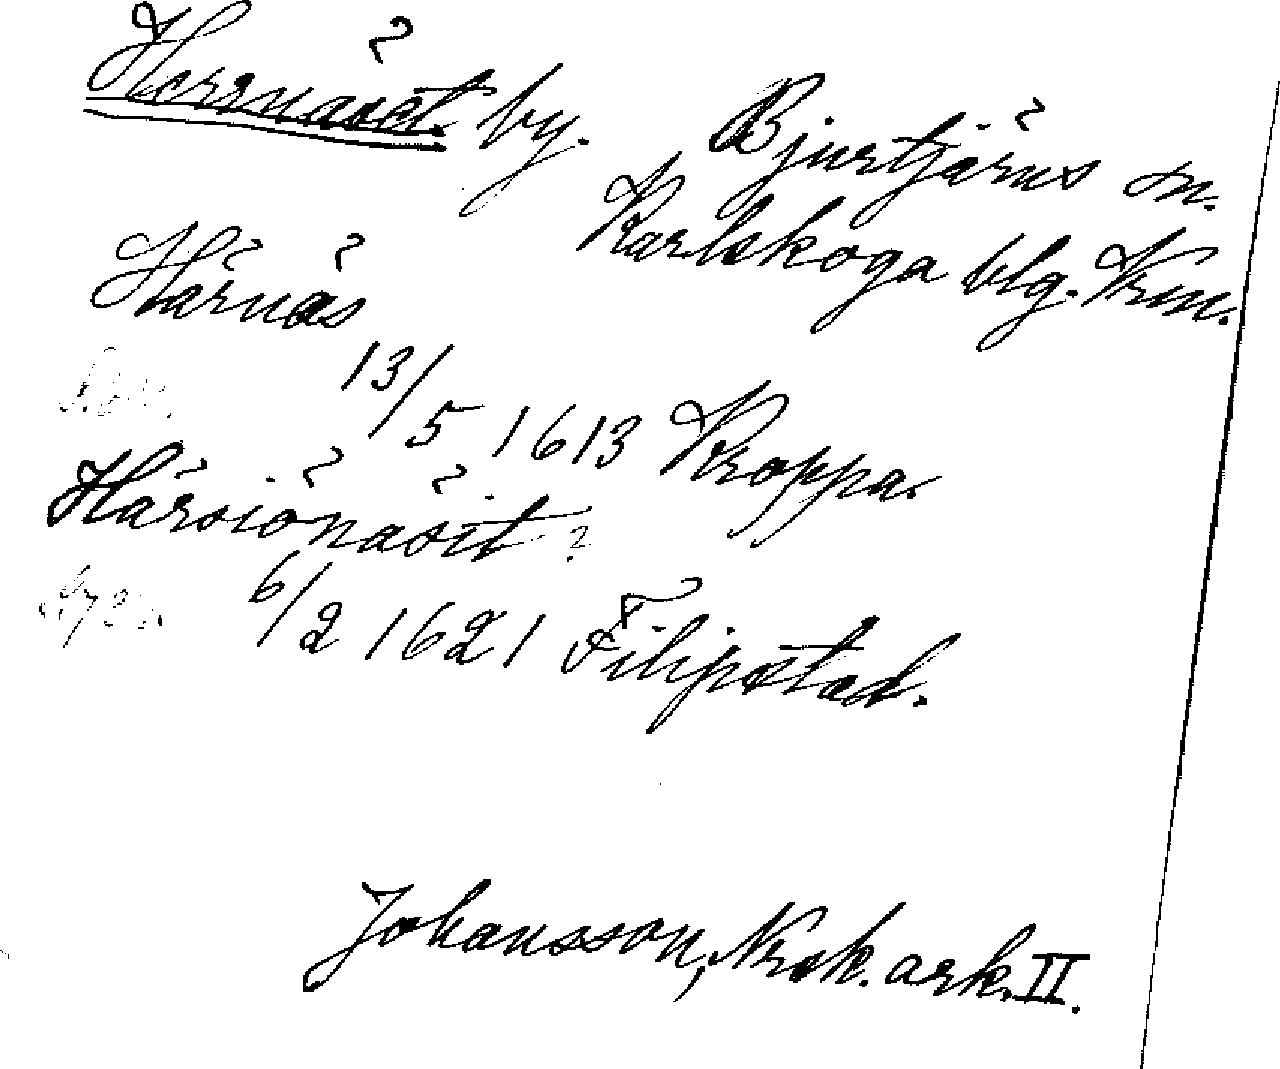 Herrnäset by. Bjurtjärns sn.
Karlskoga blg. Vrm.
Härnäs
13/5 1613 Kroppa.
Härsiönäsit ?
6/2 1621 Filipstad.
Johansson, Nrok. ark. II.